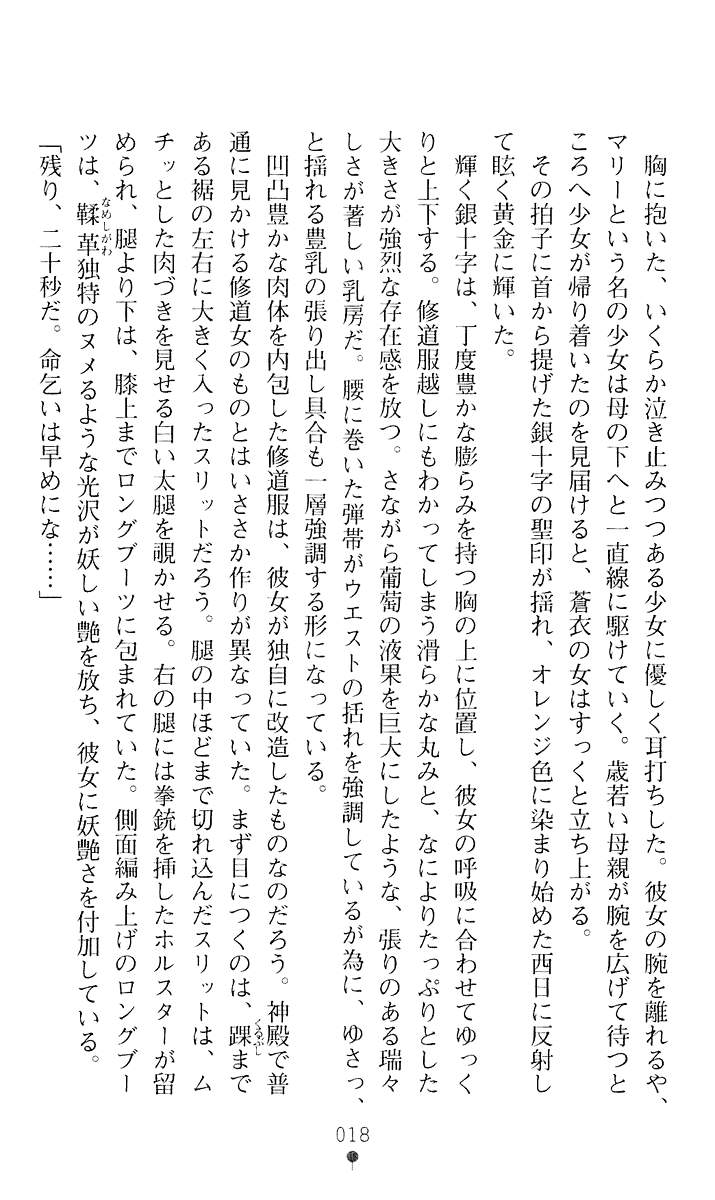 胸に抱いた、いくらか泣き止みつつある少女に優しく耳打ちした。彼女の腕を離れるや、
マリーという名の少女は母の下へと一直線に駆けていく。歳若い母親が腕を広げて待つと
ころへ少女が帰り着いたのを見届けると、蒼衣の女はすっくと立ち上がる。
その拍子に首から提げた銀十字の聖印が揺れ、オレンジ色に染まり始めた西日に反射し
て眩く黄金に輝いた。
輝く銀十字は、丁度豊かな膨らみを持つ胸の上に位置し、彼女の呼吸に合わせてゆっく
りと上下する。修道服越しにもわかってしまう滑らかな丸みと、なによりたっぷりとした
大きさが強烈な存在感を放つ。さながら葡萄の液果を巨大にしたような、張りのある瑞々
しさが著しい乳房だ。腰に巻いた弾帯がウエストの括れを強調しているが為に、ゆさっ、
と揺れる豊乳の張り出し具合も一層強調する形になっている。
凹凸豊かな肉体を内包した修道服は、彼女が独自に改造したものなのだろう。神殿で普
通に見かける修道女のものとはいささか作りが異なっていた。まず目につくのは、踝まで
ある裾の左右に大きく入ったスリットだろう。腿の中ほどまで切れ込んだスリットは、ム
チッとした肉づきを見せる白い太腿を覗かせる。右の腿には拳銃を挿したホルスターが留
められ、腿より下は、膝上までロングブーツに包まれていた。側面編み上げのロングブー
ツは、鞣革独特のヌメるような光沢が妖しい艶を放ち、彼女に妖艶さを付加している。
「残り、二十秒だ。命乞いは早めにな……」
くるぶし
なめしがわ
018